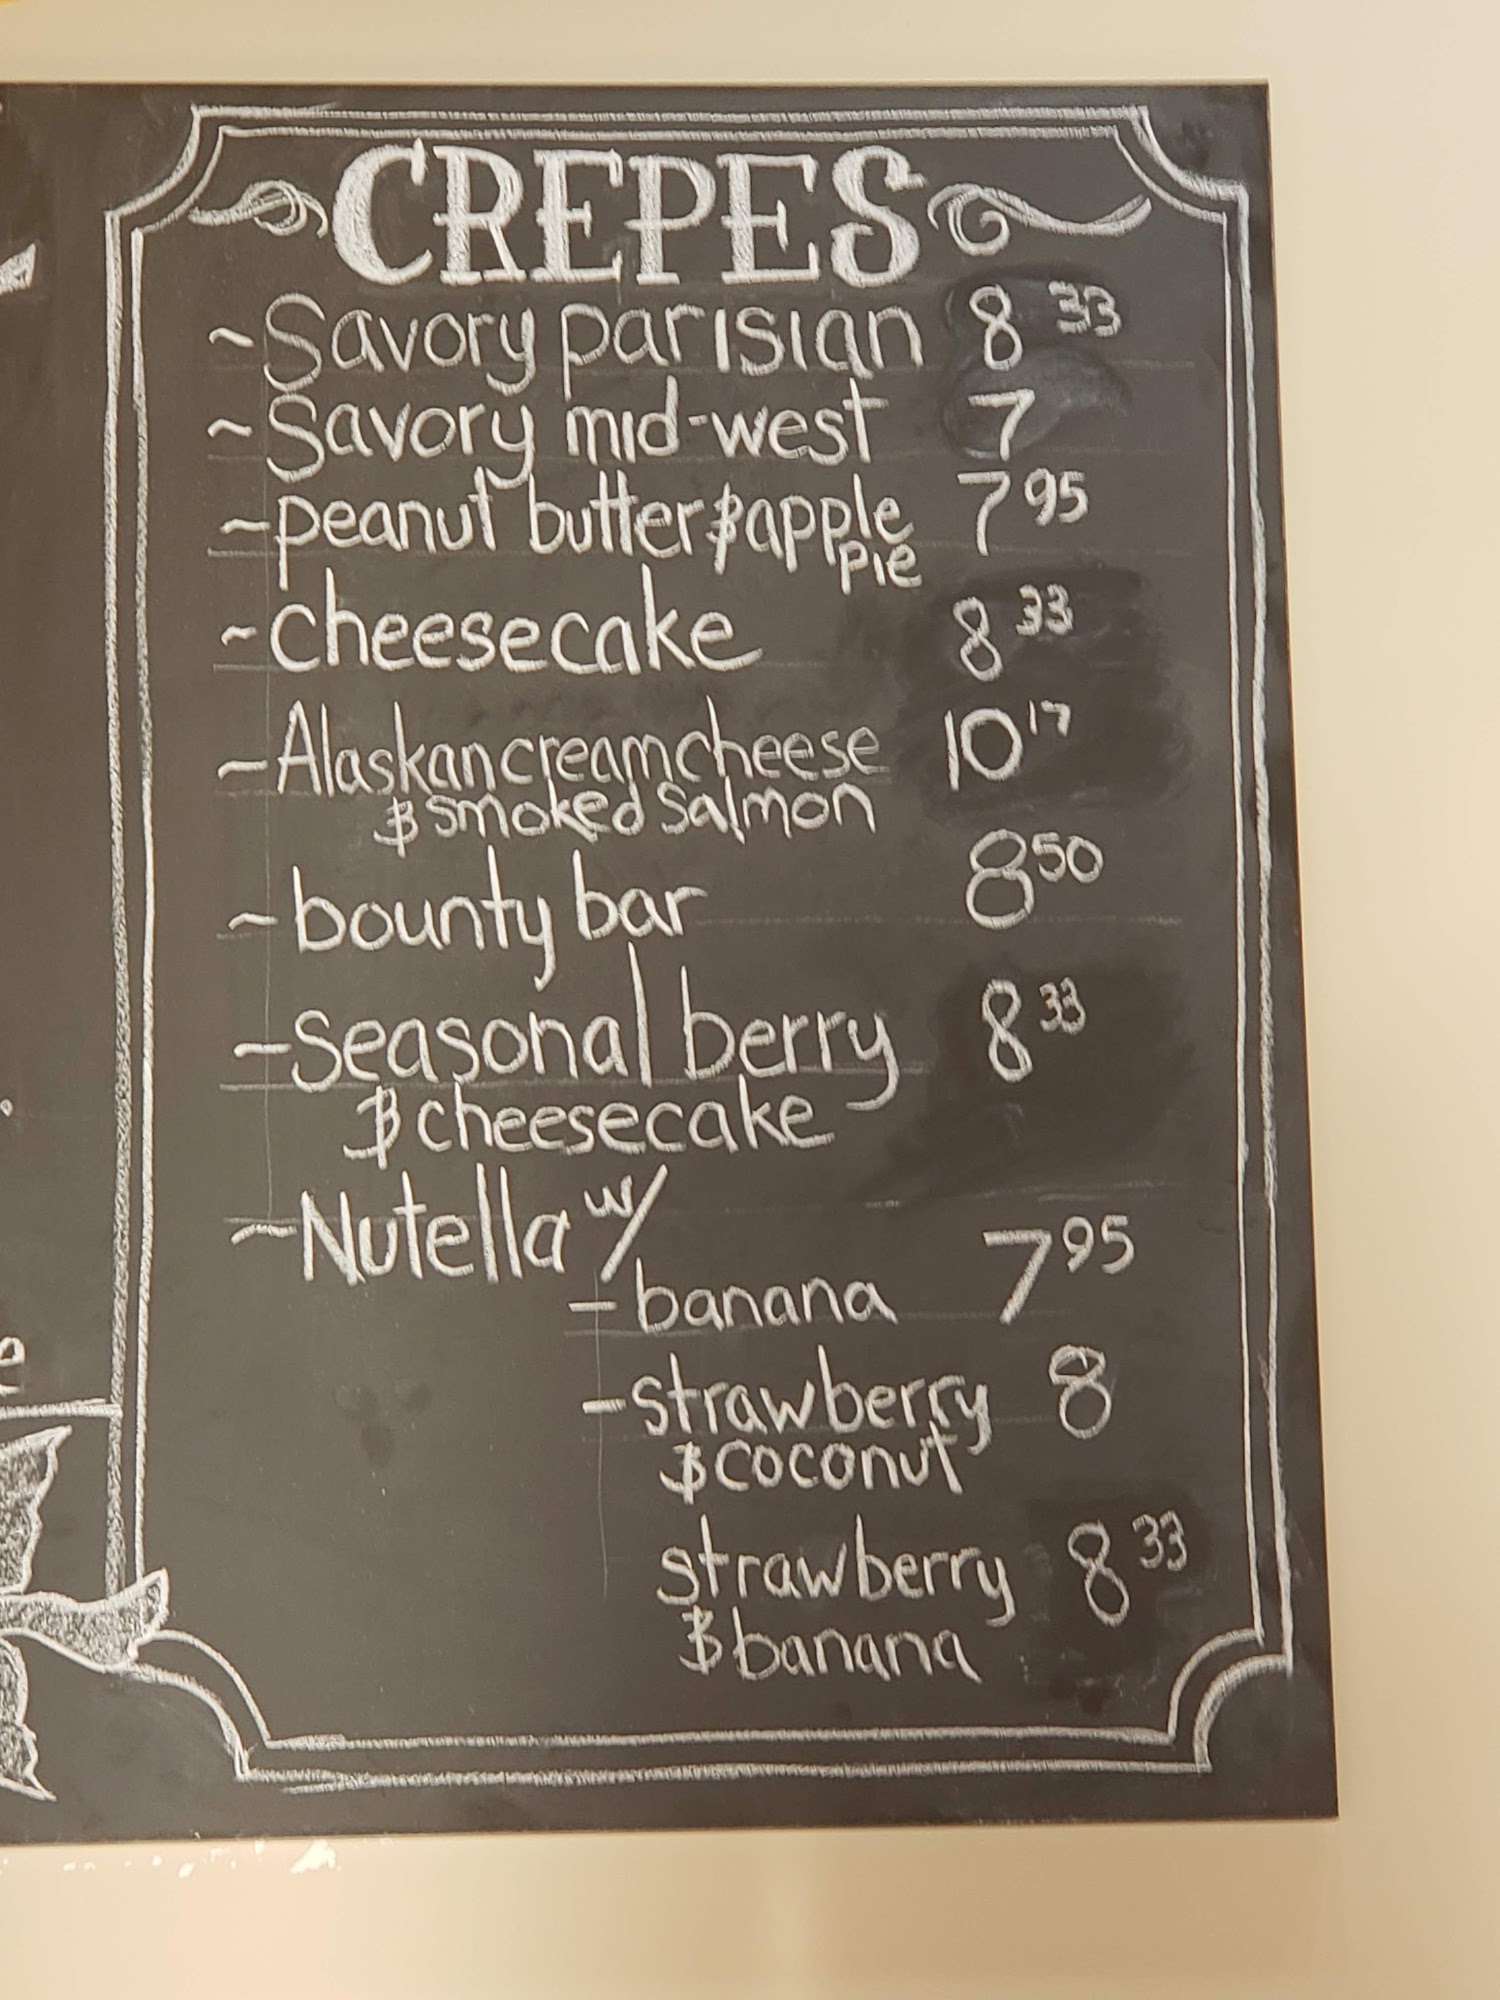 CREPES
~Savory parisian 8 33
~Savory mid-west 7
~peanut butter & apple 7 95
pie
~cheesecake 8 33
~Alaskan cream cheese 10 17
& smoked salmon
~bounty bar 8 50
~seasonal berry 8 33
& cheesecake
~Nutella w/
-banana 7 95
-strawberry 8
& coconut
strawberry 8 33
& banana